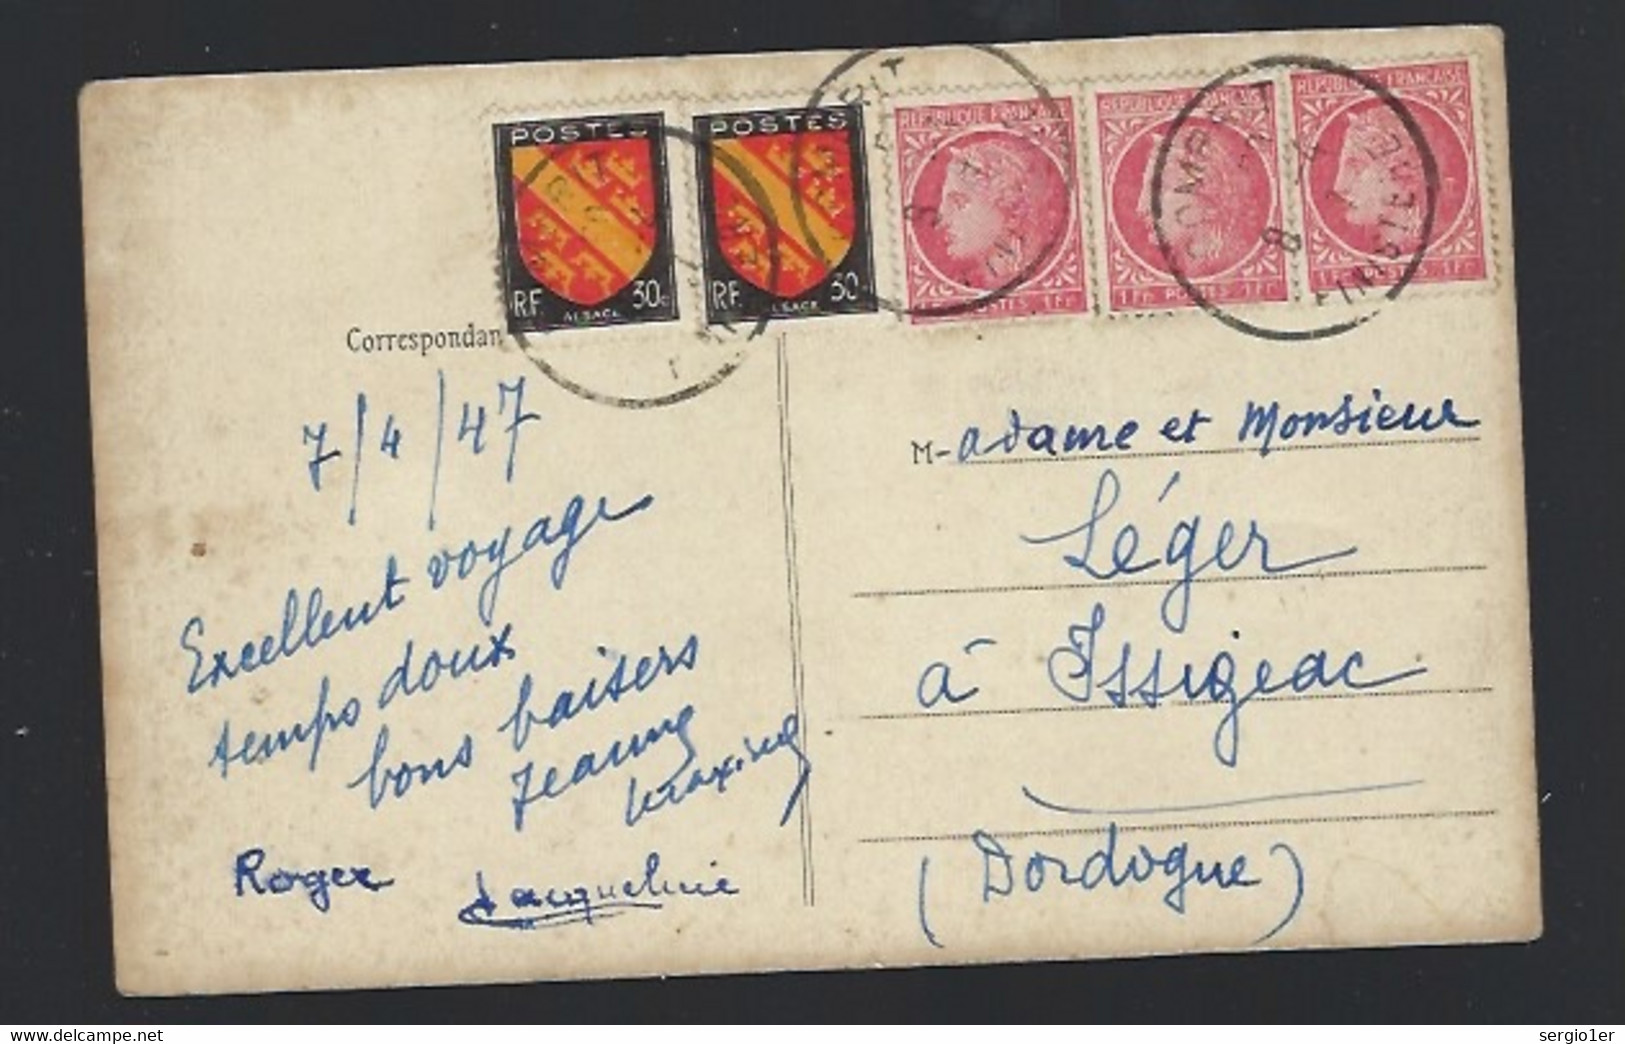 POSTES
RF 30c
ALSACE
POSTES
RF 30
ALSACE
REPUBLIQUE FRANÇAISE
POSTES 1Fr
REPUBLIQUE FRANÇAISE
1Fr POSTES 1Fr
REPUBLIQUE FRANÇAISE
1Fr POSTES 1Fr
COMBRIT
8 4
FINISTERE
Correspondan
7/4/47
Excellent voyage
temps doux
bons baisers
Roger
Jacqueline
M-adame et Monsieur
Léger
à Issigeac
(Dordogne)
www.delcampe.net
sergio1er